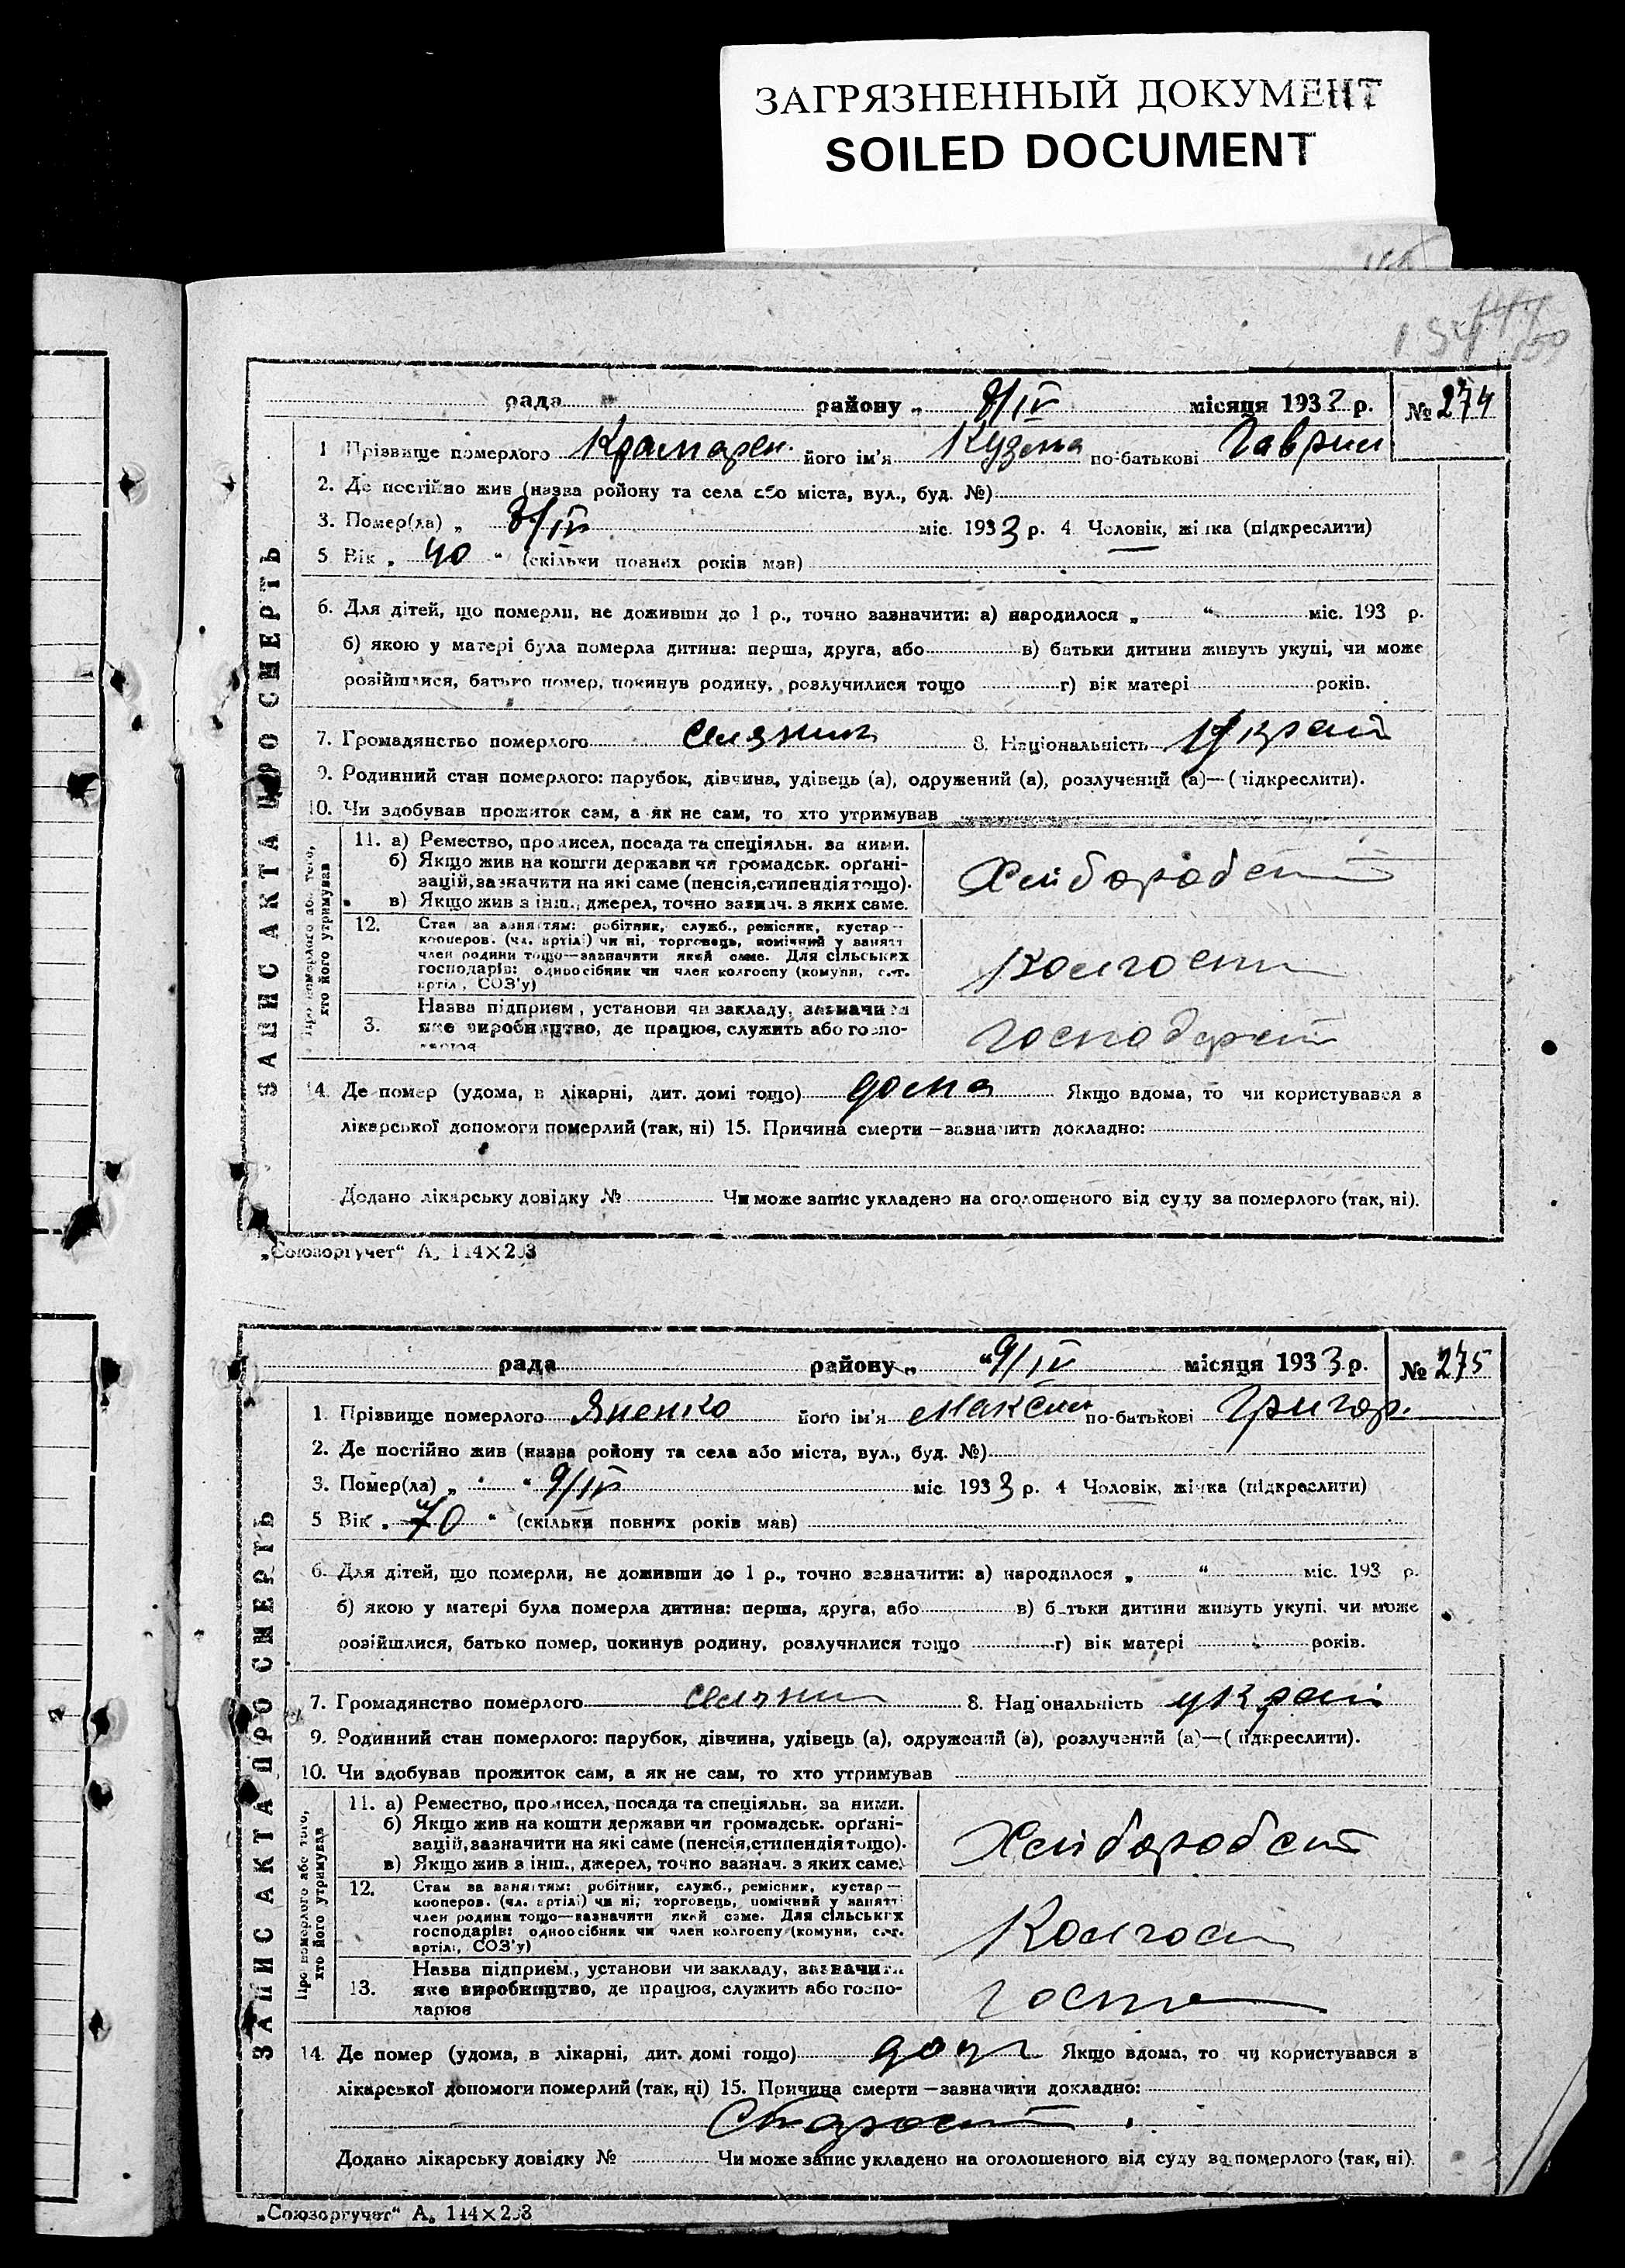 ЗАГРЯЗНЕННЫЙ ДОКУМЕНТ
SOILED DOCUMENT
рада району „ 8/IV місяця 1933 р. № 274
ЗАПИС АКТА ПРО СМЕРТЬ
1 Прізвище померлого Крамарен. його ім'я Кузьма по-батькові Гаврил
2. Де постійно жив (назва ройону та села або міста, вул., буд. №)
3. Помер(ла) „ 8/IV міс. 1933 р. 4 Чоловік, жінка (підкреслити)
5 Вік „ 40 “ (скільки повних років мав)
6. Для дітей, що померли, не доживши до 1 р., точно зазначити: а) народилося „ “ міс. 193 р.
б) якою у матері була померла дитина: перша, друга, або в) батьки дитини живуть укупі, чи може
розійшлися, батько помер, покинув родину, розлучилися тощо г) вік матері років.
7. Громадянство померлого селянин 8. Національність Украй
9. Родинний стан померлого: парубок, дівчина, удівець (а), одружений (а), розлучений (а)—(підкреслити).
10. Чи здобував прожиток сам, а як не сам, то хто утримував
Про померлого або того, хто його утримував
11. а) Ремество, промисел, посада та спеціяльн. за ними.
б) Якщо жив на кошти держави чи громадськ. орґані-
зацій, зазначити на які саме (пенсія, стипендія тощо).
в) Якщо жив з інш., джерел, точно зазнач. з яких саме.
Хлібороб
12. Стан за заняттям: робітник, служб., ремісник, кустар—
кооперов. (чл. артілі) чи ні, торговець, помічний у занятт
член родини тощо—зазначити який саме. Для сільських
господарів: одноосібник чи член колгоспу (комуни, с.-г.
артіл., СОЗ'у)
Колгосп
3. Назва підприєм., установи чи закладу, зазначити
яке виробництво, де працює, служить або госпо-
дарює
14. Де помер (удома, в лікарні, дит. домі тощо) дома Якщо вдома, то чи користувався з
лікарської допомоги померлий (так, ні) 15. Причина смерти—зазначити докладно:
Додано лікарську довідку № Чи може запис укладено на оголошеного від суду за померлого (так, ні).
„Союзоргучет“ А₅ 114×203
рада району „ “ 9/IV місяця 1933 р. № 275
ЗАПИС АКТА ПРО СМЕРТЬ
1. Прізвище померлого Яненко його ім'я Максим по-батькові Григор.
2. Де постійно жив (назва ройону та села або міста, вул., буд. №)
3. Помер(ла) „ “ 9/IV міс 1933 р. 4 Чоловік, жінка (підкреслити)
5 Вік „ 70 “ (скільки повних років мав)
6. Для дітей, що померли, не доживши до 1 р., точно зазначити: а) народилося „ “ міс. 193 р.
б) якою у матері була померла дитина: перша, друга, або в) батьки дитини живуть укупі, чи може
розійшлися, батько помер, покинув родину, розлучилися тощо г) вік матері років.
7. Громадянство померлого селянин 8. Національність украї
9. Родинний стан померлого: парубок, дівчина, удівець (а), одружений (а), розлучений (а)—(підкреслити).
10. Чи здобував прожиток сам, а як не сам, то хто утримував
Про померлого або того, хто його утримував
11. а) Ремество, промисел, посада та спеціяльн. за ними.
б) Якщо жив на кошти держави чи громадськ. орґані-
зацій, зазначити на які саме (пенсія, стипендія тощо).
в) Якщо жив з інш., джерел, точно зазнач. з яких саме.
Хлібороб
12. Стан за заняттям: робітник, служб., ремісник, кустар—
кооперов. (чл. артілі) чи ні, торговець, помічний у занятт
член родини тощо—зазначити який саме. Для сільських
господарів: одноосібник чи член колгоспу (комуни, с.-г.
артіл., СОЗ'у)
Колгосп
13. Назва підприєм., установи чи закладу, зазначити
яке виробництво, де працює, служить або госпо-
дарює
14. Де помер (удома, в лікарні, дит. домі тощо) дома Якщо вдома, то чи користувався з
лікарської допомоги померлий (так, ні) 15. Причина смерти—зазначити докладно:
Старост
Додано лікарську довідку № Чи може запис укладено на оголошеного від суду за померлого (так, ні).
„Союзоргучет“ А₅ 114×203